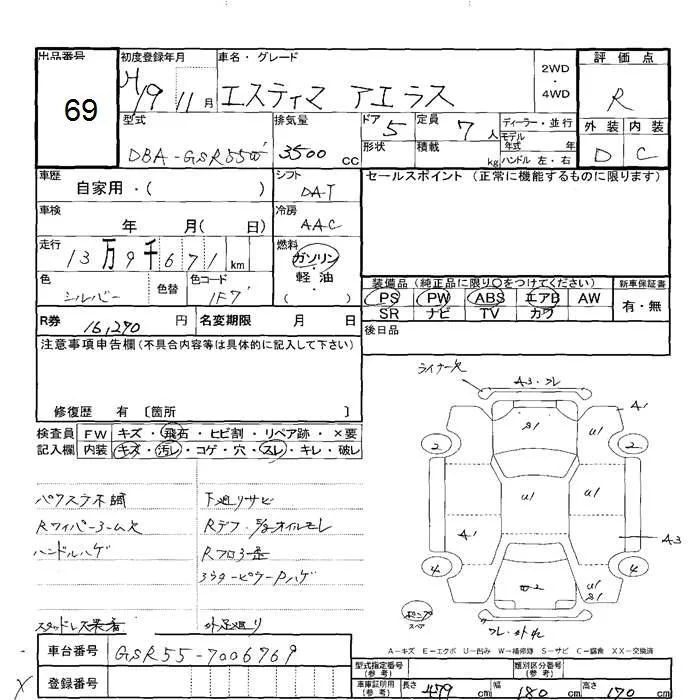 出品番号 初度登録年月 車名・グレード 2WD・4WD 評価点
69 H19 11月 エスティマ アエラス R
型式 排気量 ドア 5 定員 7人 ディーラー・並行 外装 内装
DBA-GSR55W 3500cc 形状 積載 kg モデル年式 年 ハンドル 左・右 D C
車歴 自家用・( ) シフト DAT セールスポイント (正常に機能するものに限ります)
車検 年 月( 日) 冷房 AAC
走行 13万9千671km 燃料 ガソリン・軽油( )
色 シルバー 色替 色コード 1F7
装備品(純正品に限り○をつけてください) 新車保証書
PS PW ABS エアB AW 有・無
SR ナビ TV カワ
R券 16,290円 名変期限 月 日 後日品
注意事項申告欄(不具合内容等は具体的に記入して下さい)
修復歴 有 〔箇所 〕
検査員記入欄 FW キズ・飛石・ヒビ割・リペア跡・×要
内装 キズ・汚レ・コゲ・穴・スレ・キレ・破レ
ライナー欠
A3・フレ
A1
S1 U1 U1
2 2
U1 U1
A1 A3
4 4
U1 S1
スペア
フレ・外れ
パワスラ不調 下廻りサビ
Rワイパーアーム欠
ハンドルハゲ
スタッドレス装着 外足廻り
A-キズ E-エクボ U-凹み W-補修跡 S-サビ C-腐食 XX-交換済
車台番号 GSR55-7006769
登録番号
型式指定番号(参考) 類別区分番号(参考)
車庫証明用(参考) 長さ 479cm 幅 180cm 高さ 170cm